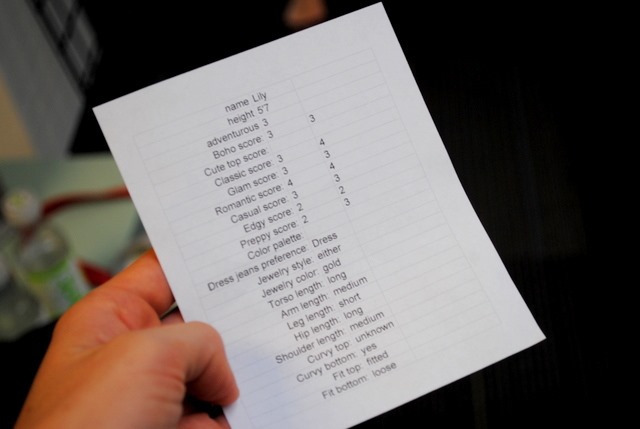 name Lily
height 5'7
adventurous 3
Boho score: 3 3
Cute top score:
Classic score: 3 4
Glam score: 3 3
Romantic score: 4 4
Casual score: 3 3
Edgy score: 2 2
Preppy score: 2 3
Color palette:
Dress jeans preference: Dress
Jewelry style: either
Jewelry color: gold
Torso length: long
Arm length: medium
Leg length: short
Hip length: long
Shoulder length: medium
Curvy top: unknown
Curvy bottom: yes
Fit top: fitted
Fit bottom: loose